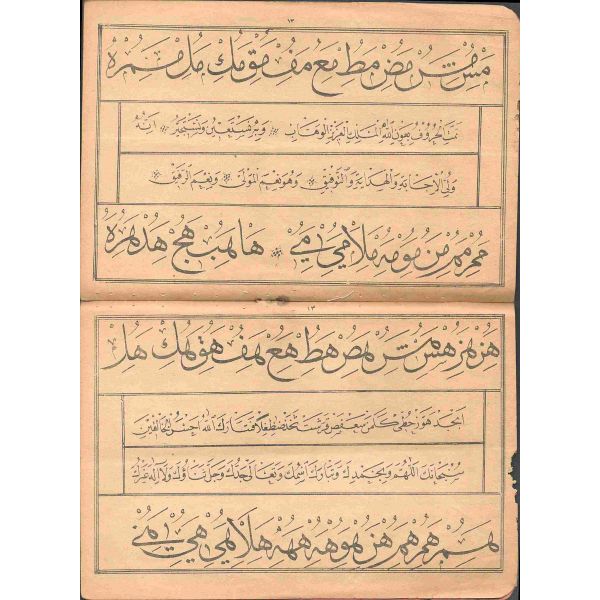 مس مش مص مط مع مف مق مك مل
تمت الحروف بعون الله الملك العزيز الوهاب وبه نستعين ونستجير انه
ولي الاجابة والهداية والتوفيق وهو نعم المولى ونعم الرفيق
من مو مه ملا مي مي ها هب هج هد هر ه
١٣
هز هر هس هش هص هط هع هف هق هك هل
ابجد هوز حطي كلمن سعفص قرشت ثخذ ضظغلا فتبارك الله احسن الخالقين
سبحانك اللهم وبحمدك وتبارك اسمك وتعالى جدك وجل ثناؤك ولا اله غيرك
هم هم هن هو هه هه هلا هي هي